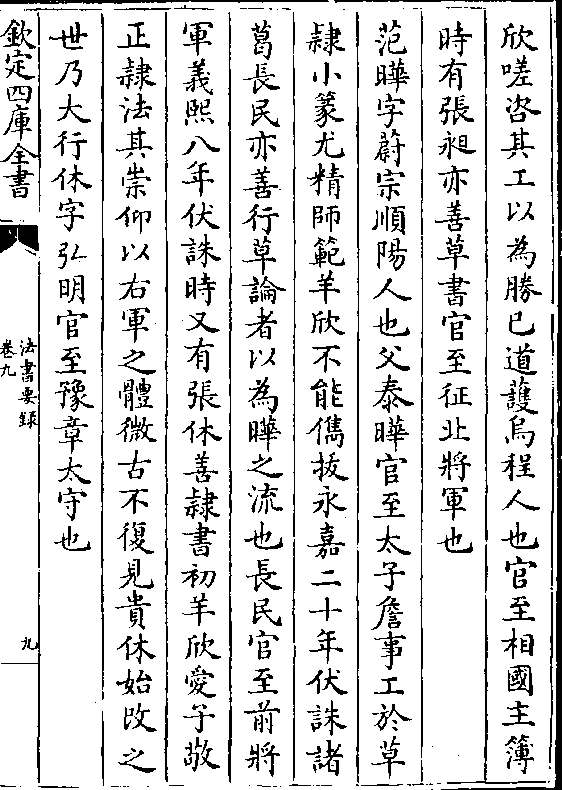 欣嗟咨其工以為勝已道護烏程人也官至相國主簿
時有張昶亦善草書官至征北將軍也
范曄字蔚宗順陽人也父泰曄官至太子詹事工於草
隷小篆尤精師範羊欣不能儁拔永嘉二十年伏誅諸
葛長民亦善行草論者以為曄之流也長民官至前將
軍義熙八年伏誅時又有張休善隷書初羊欣愛子敬
正隷法其崇仰以右軍之體微古不復見貴休始改之
世乃大行休字弘明官至豫章太守也
欽定四庫全書
法書要録
卷九
九